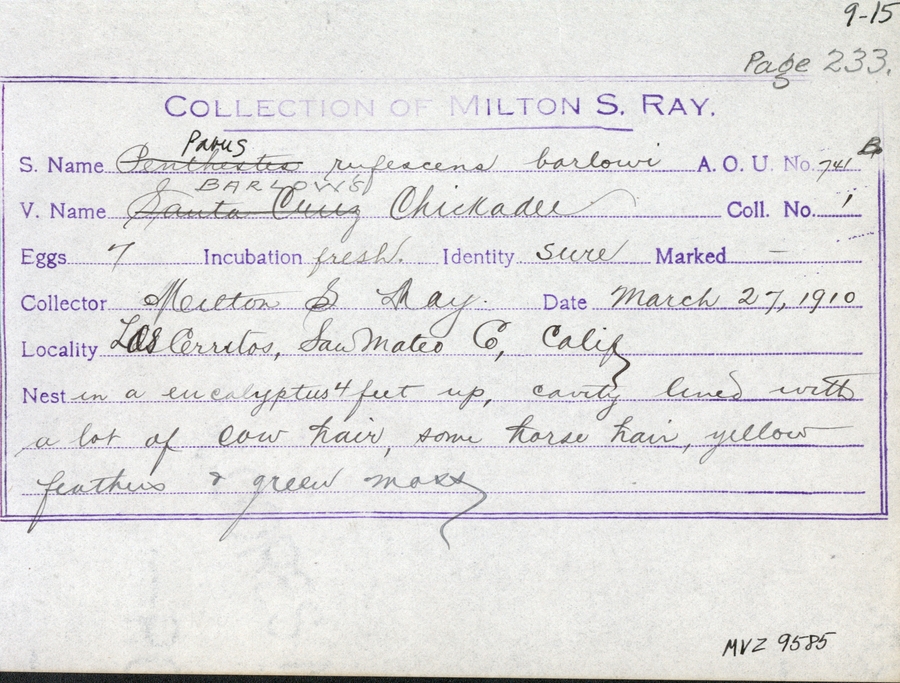 9-15
Page 233.
COLLECTION OF MILTON S. RAY.
Parus
S. Name Penthestes rufescens barlowi A. O. U. No. 741 B
BARLOW'S
V. Name Santa Cruz Chickadee Coll. No. 1
Eggs 7 Incubation fresh. Identity sure Marked —
Collector Milton S Ray. Date March 27, 1910
Locality Los Cerritos, San Mateo Co, Calif
Nest in a eucalyptus 4 feet up, cavity lined with
a lot of cow hair, some horse hair, yellow
feathers & green moss
MVZ 9585